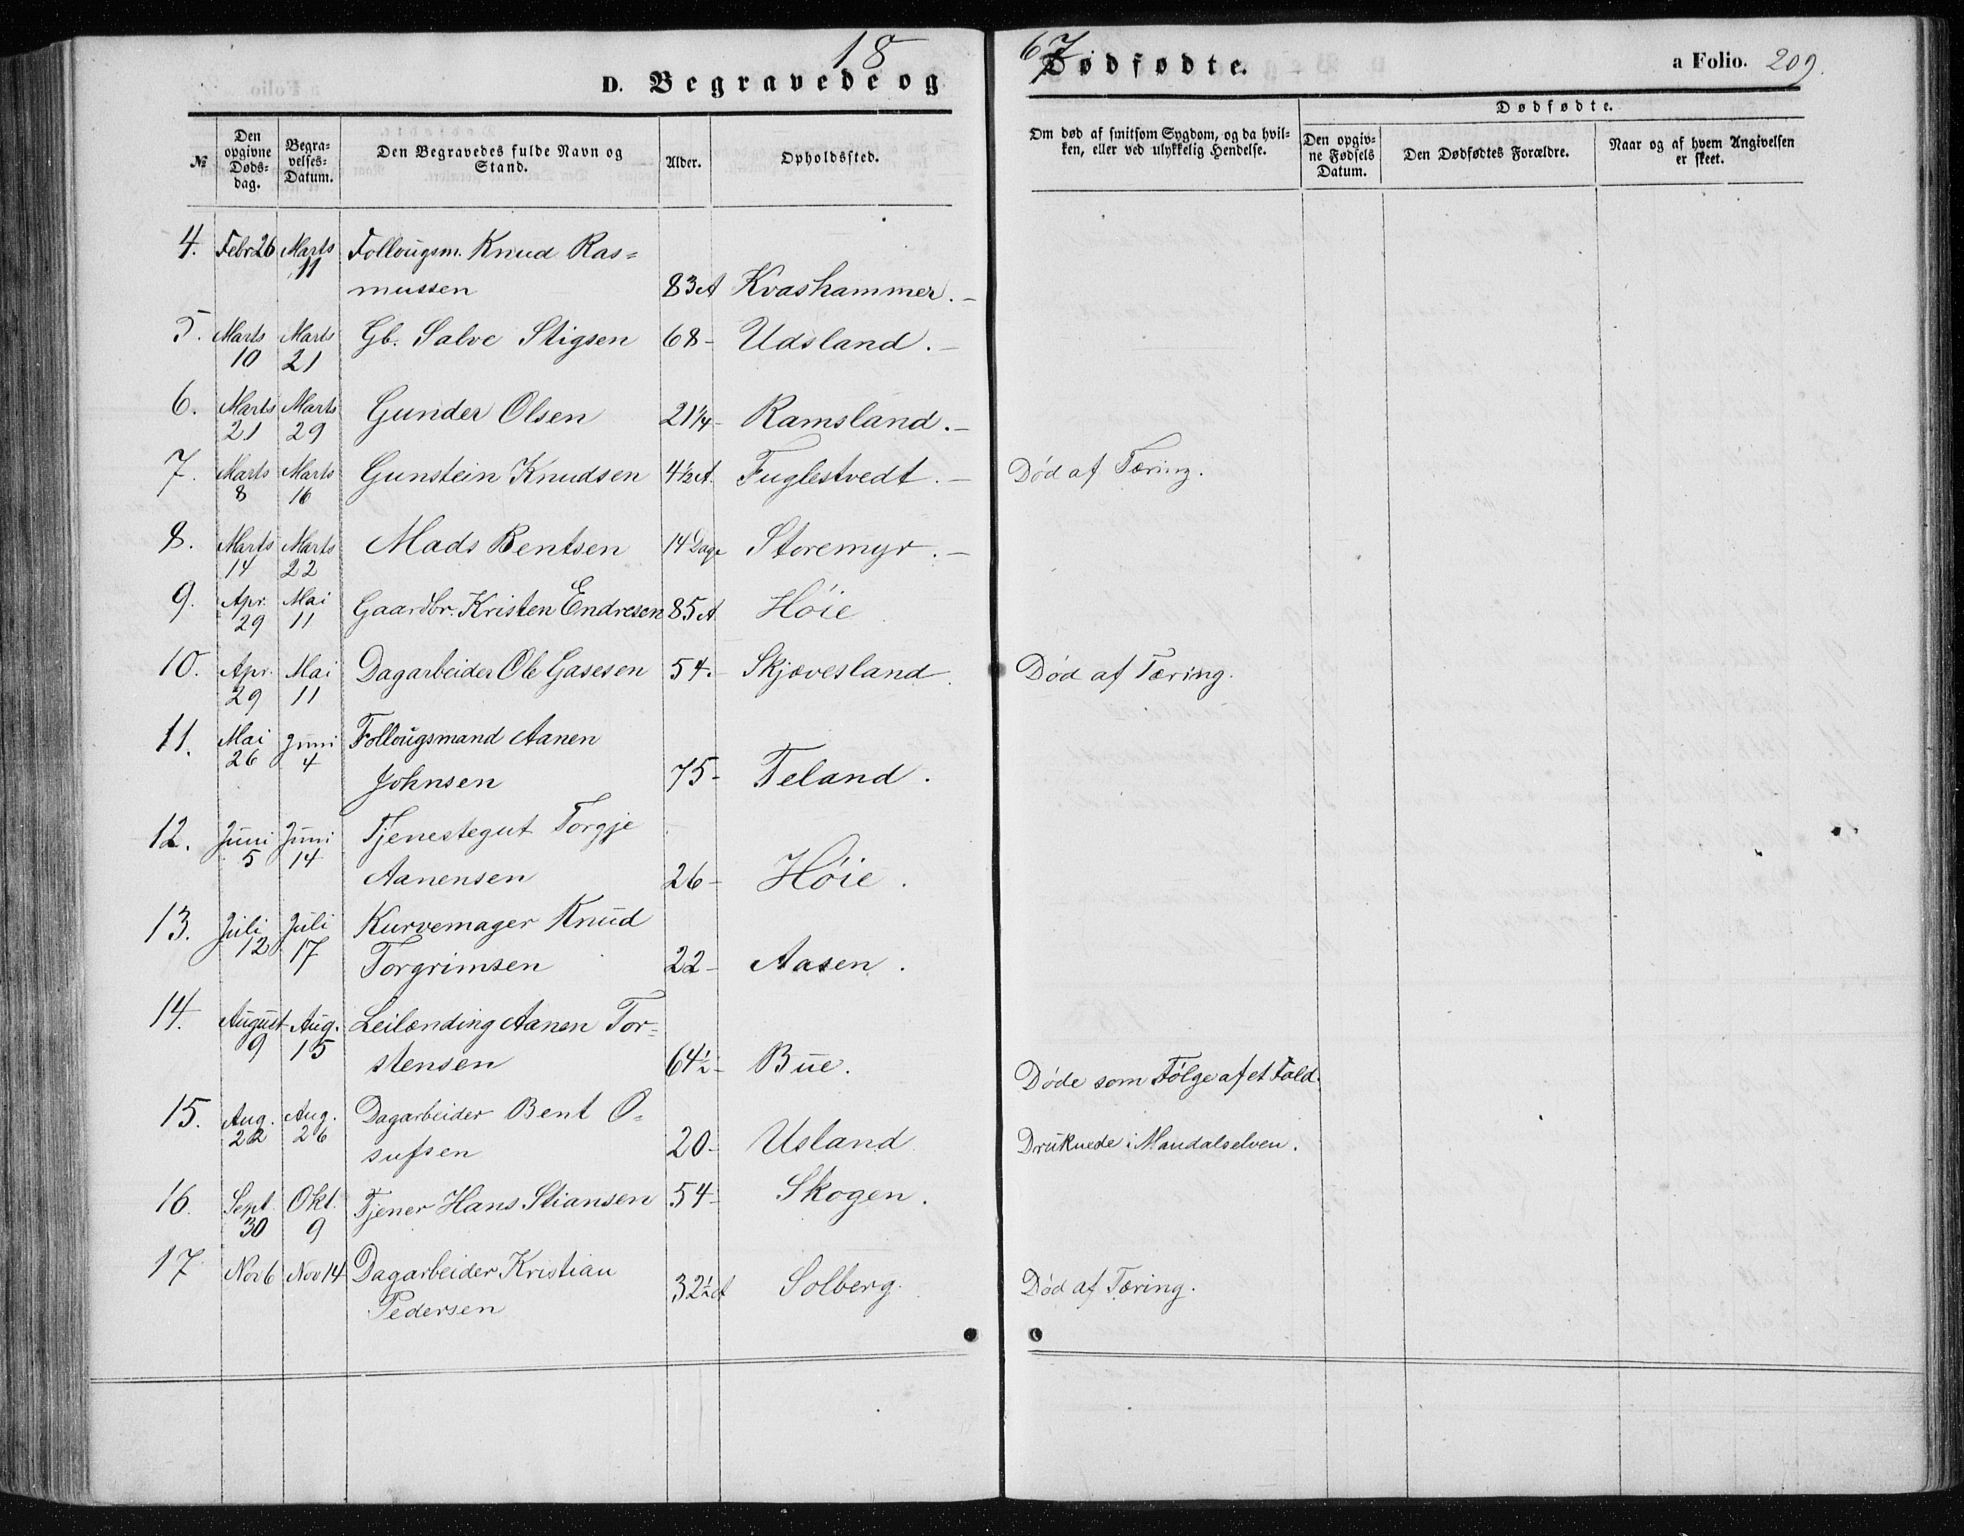 18 67
D. Begravede og Dødfødte. a Folio. 209.
Dødfødte.
№ Den opgivne Døds-dag. Begra-velses-Datum. Den Begravedes fulde Navn og Stand. Alder. Opholdssted. Om død af smitsom Sygdom, og da hvil-ken, eller ved ulykkelig Hendelse. Den opgiv-ne Fødsels Datum. Den Dødfødtes Forældre. Naar og af hvem Angivelsen er skeet.
4. Febr 26 Marts 11 Follougsm. Knud Ras=
mussen 83 A Kvashammer. -
5. Marts 10 Marts 21 Gb. Salve Stigsen 68 - Udsland. -
6. Marts 21 Marts 29 Gunder Olsen 21¼ - Ramsland. -
7. Marts 8 Marts 16 Gunstein Knudsen 4½ A. Fuglestvedt. - Død af Tæring.
8. Marts 14 Marts 22 Mads Bentsen 14 Dage Storemyr. -
9. Apr. 29 Mai 11 Gaardbr. Kristen Endresen 85 A Høie
10. Apr. 29 Mai 11 Dagarbeider Ole Gasesen 54. - Skjævesland. Død af Tæring.
11. Mai 26 Juni 4 Follougsmand Aanen
Johnsen 75 - Teland.
12. Juni 5 Juni 14 Tjenestegut Torgje
Aanensen 26 - Høie.
13. Juli 12 Juli 17 Kurvemager Knud
Torgrimsen 22 - Aasen.
14. August 9 Aug. 15 Leilænding Aanen Tor=
stensen 64½ - Bue. Døde som Følge af et Fald.
15. Aug. 22 Aug. 26 Dagarbeider Bent O-
sufsen 20 - Usland Druknede i Mandalselven.
16. Sept. 30 Okt. 9 Tjener Hans Stiansen 54 - Skogen.
17. Nov 6 Nov 14 Dagarbeider Kristian
Pedersen 32½ A Solberg. Død af Tæring.